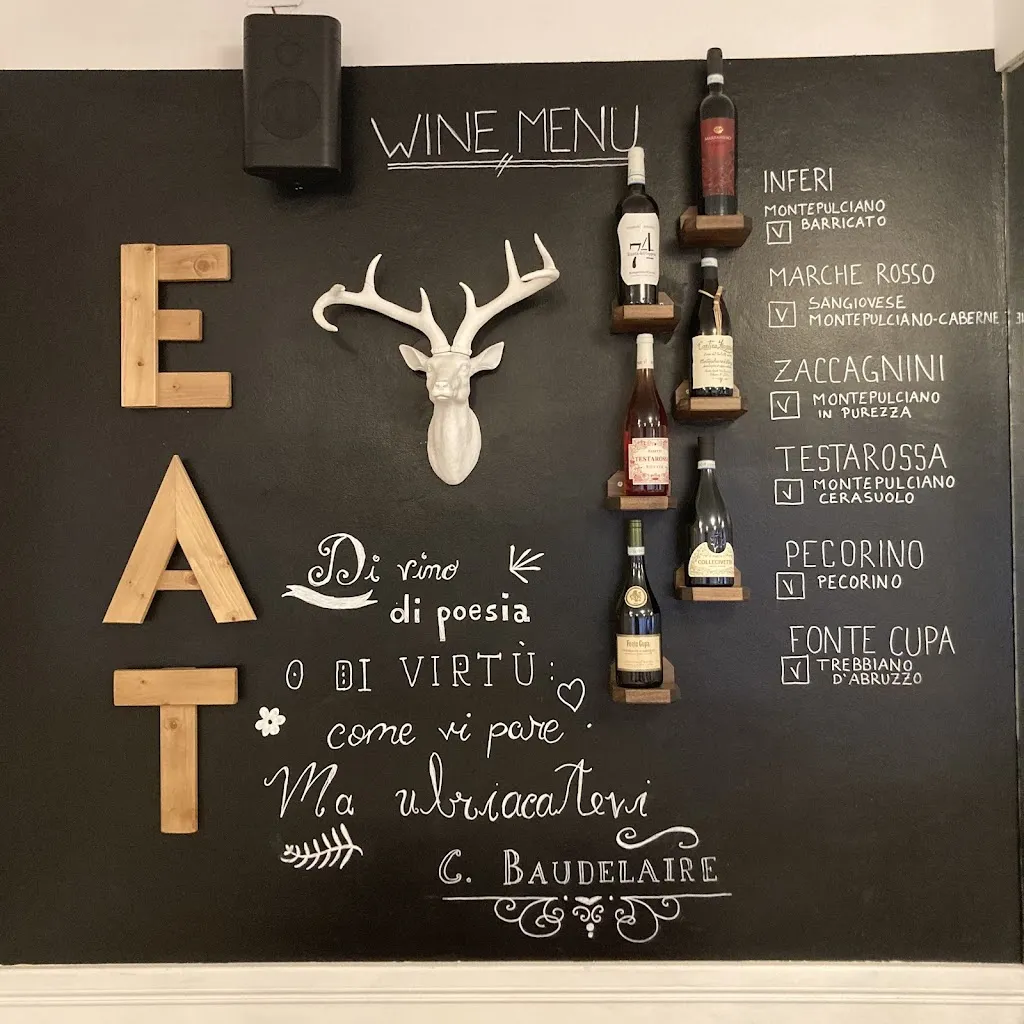 WINE MENU
EAT
INFERI
MONTEPULCIANO
BARRICATO
MARCHE ROSSO
SANGIOVESE
MONTEPULCIANO-CABERNET
ZACCAGNINI
MONTEPULCIANO
IN PUREZZA
TESTAROSSA
MONTEPULCIANO
CERASUOLO
PECORINO
PECORINO
FONTE CUPA
TREBBIANO
D'ABRUZZO
74
TESTAROSSA
Fonte Cupa
Di vino
di poesia
O DI VIRTÙ:
come vi pare.
Ma ubriacatevi
C. BAUDELAIRE